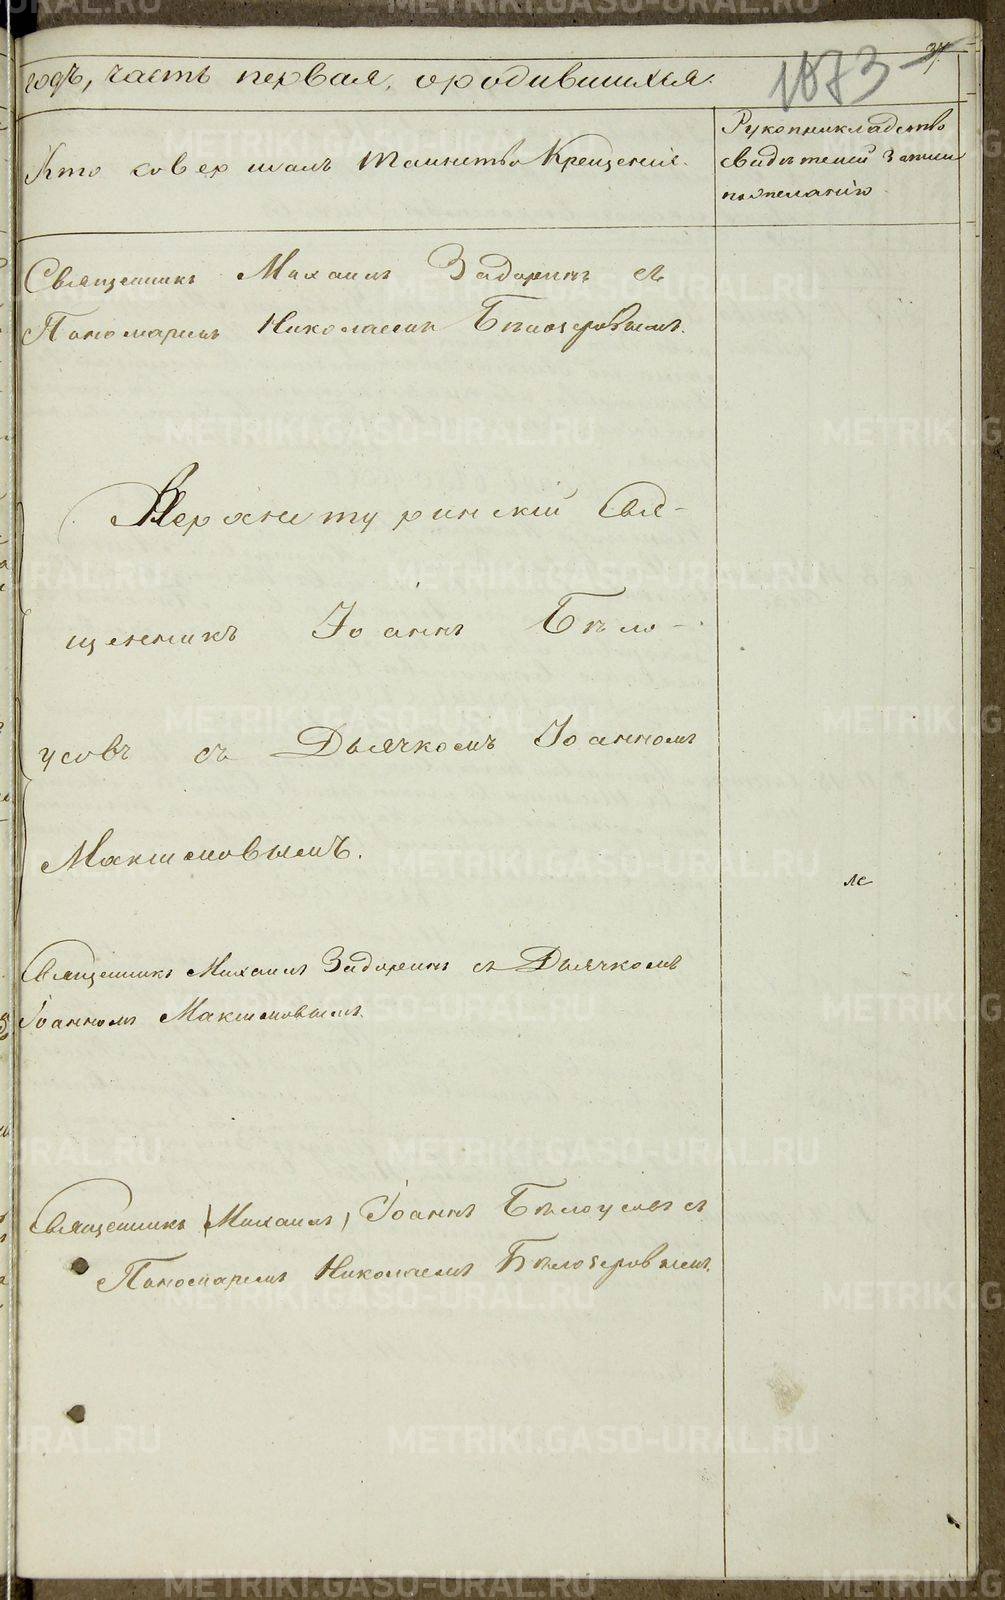 годъ, часть первая, ородившихся.
1873
37
Кто совершалъ таинство Крещенія.
Рукоприкладство
свидѣтелей записи
пожеланію.
Священникъ Михаилъ Задоринъ съ
Пономаремъ Николаемъ Бѣлозеровымъ.
Верхнетуринскій Свя-
щенникъ Іоаннъ Бѣло-
усовъ съ Дьячкомъ Іоанномъ
Максимовымъ.
Священникъ Михаилъ Задоринъ съ Дьячкомъ
Іоанномъ Максимовымъ.
Священникъ (Михаилъ) Іоаннъ Бѣлоусовъ съ
Пономаремъ Николаемъ Бѣлозеровымъ.
METRIKI.GASO-URAL.RU